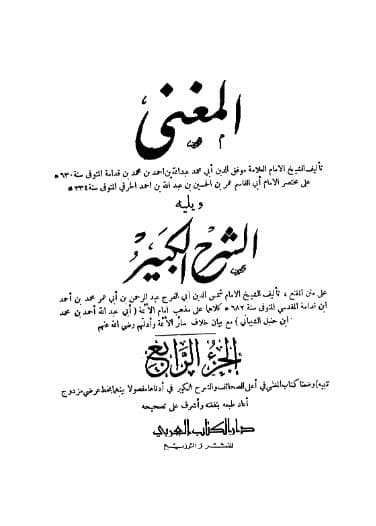 المغني
تأليف الشيخ الامام العلامة موفق الدين أبي محمد عبدالله بن احمد بن محمد بن قدامة المتوفى سنة ٦٣٠ هـ
على مختصر الامام أبي القاسم عمر بن الحسين بن عبد الله بن احمد الخرقي المتوفى سنة ٣٣٤ هـ
ويليه
الشرح الكبير
على متن المقنع ، تأليف الشيخ الامام شمس الدين أبي الفرج عبد الرحمن بن أبي عمر محمد بن أحمد
ابن قدامة المقدسي المتوفى سنة ٦٨٢ هـ كلاهما على مذهب امام الأئمة ( أبي عبد الله أحمد بن محمد
ابن حنبل الشيباني ) مع بيان خلاف سائر الأئمة وأدلتهم رضي الله عنهم
الجزء الرابع
تنبيه ) وضعنا كتاب المغني في أعلى الصحائف والشرح الكبير في أدناها مفصولا بينهما بخط عرضي مزدوج
أعاد طبعه بنفقته وأشرف على تصحيحه
دار الكتاب العربي
للنشر والتوزيع